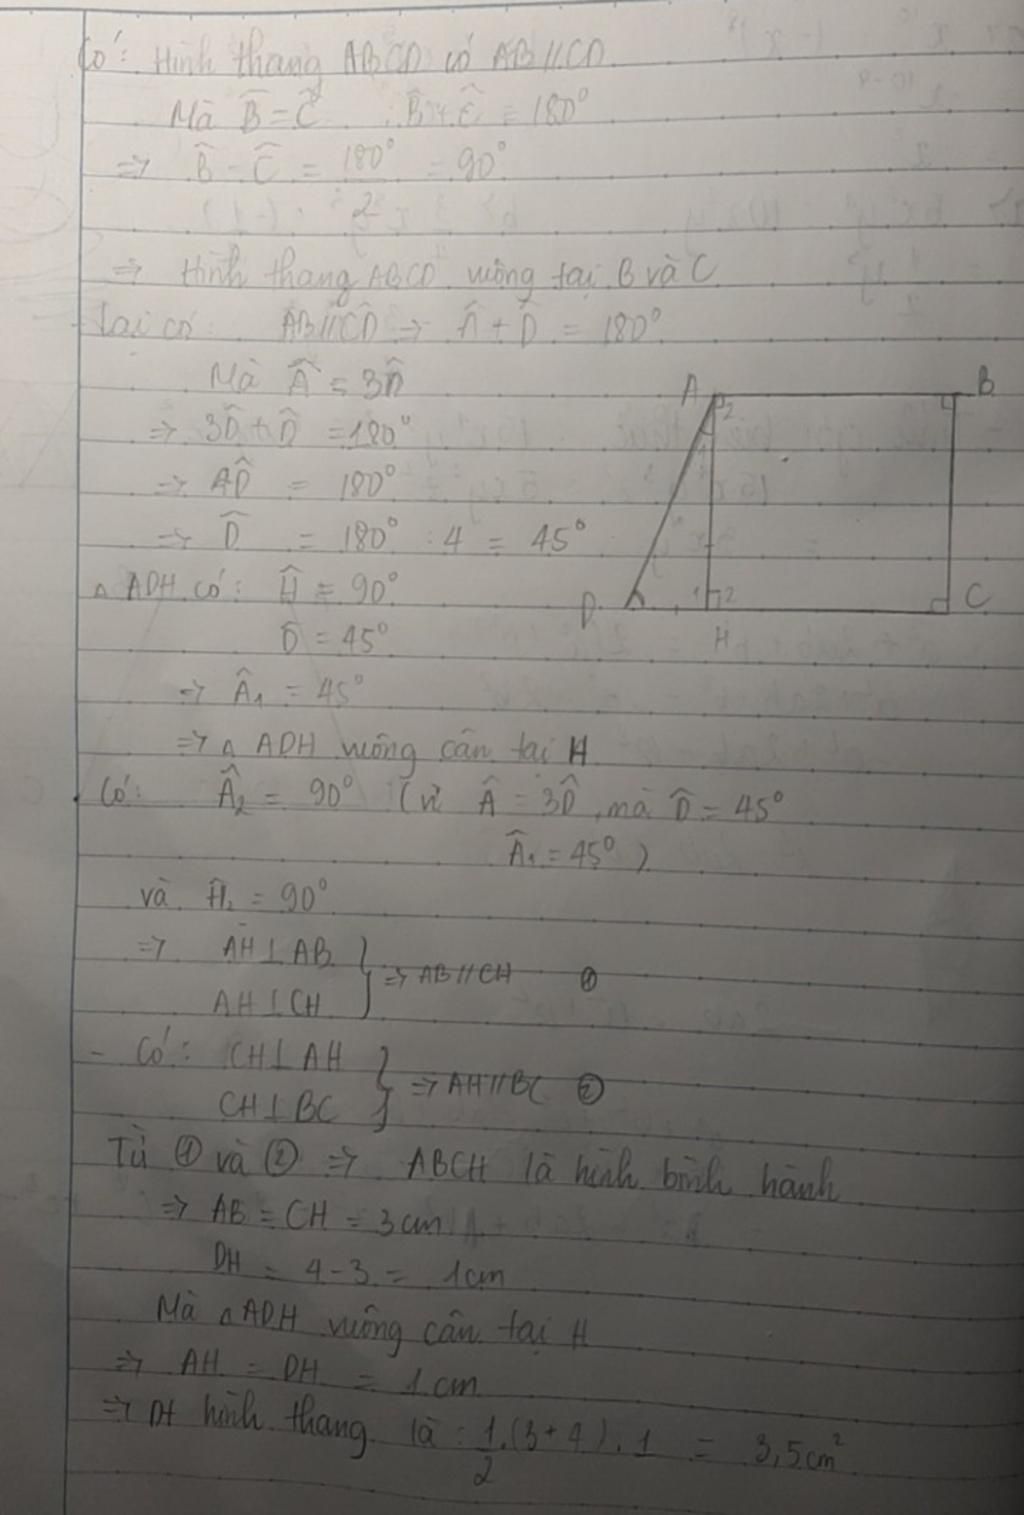 Có: Hình thang ABCD có AB//CD
Mà B̂ = Ĉ B̂ + Ĉ = 180°
=> B̂ = Ĉ = 180°/2 = 90°
=> Hình thang ABCD vuông tại B và C
Lại có: AB//CD => Â + D̂ = 180°
Mà Â = 3D̂
=> 3D̂ + D̂ = 180°
=> 4D̂ = 180°
=> D̂ = 180° : 4 = 45°
△ ADH có: Ĥ = 90°
D̂ = 45°
=> Â₁ = 45°
=> △ ADH vuông cân tại H
Có: Â₂ = 90° (vì Â = 3D̂, mà D̂ = 45°
Â₁ = 45°)
và Ĥ₂ = 90°
=> AH ⊥ AB } => AB // CH ①
AH ⊥ CH
- Có: CH ⊥ AH } => AH // BC ②
CH ⊥ BC
Từ ① và ② => ABCH là hình bình hành
=> AB = CH = 3cm
DH = 4 - 3 = 1cm
Mà △ADH vuông cân tại H
=> AH = DH = 1cm
=> Dt hình thang là: 1/2.(3+4).1 = 3,5cm²
A 2 B
1
D 1 2 C
H